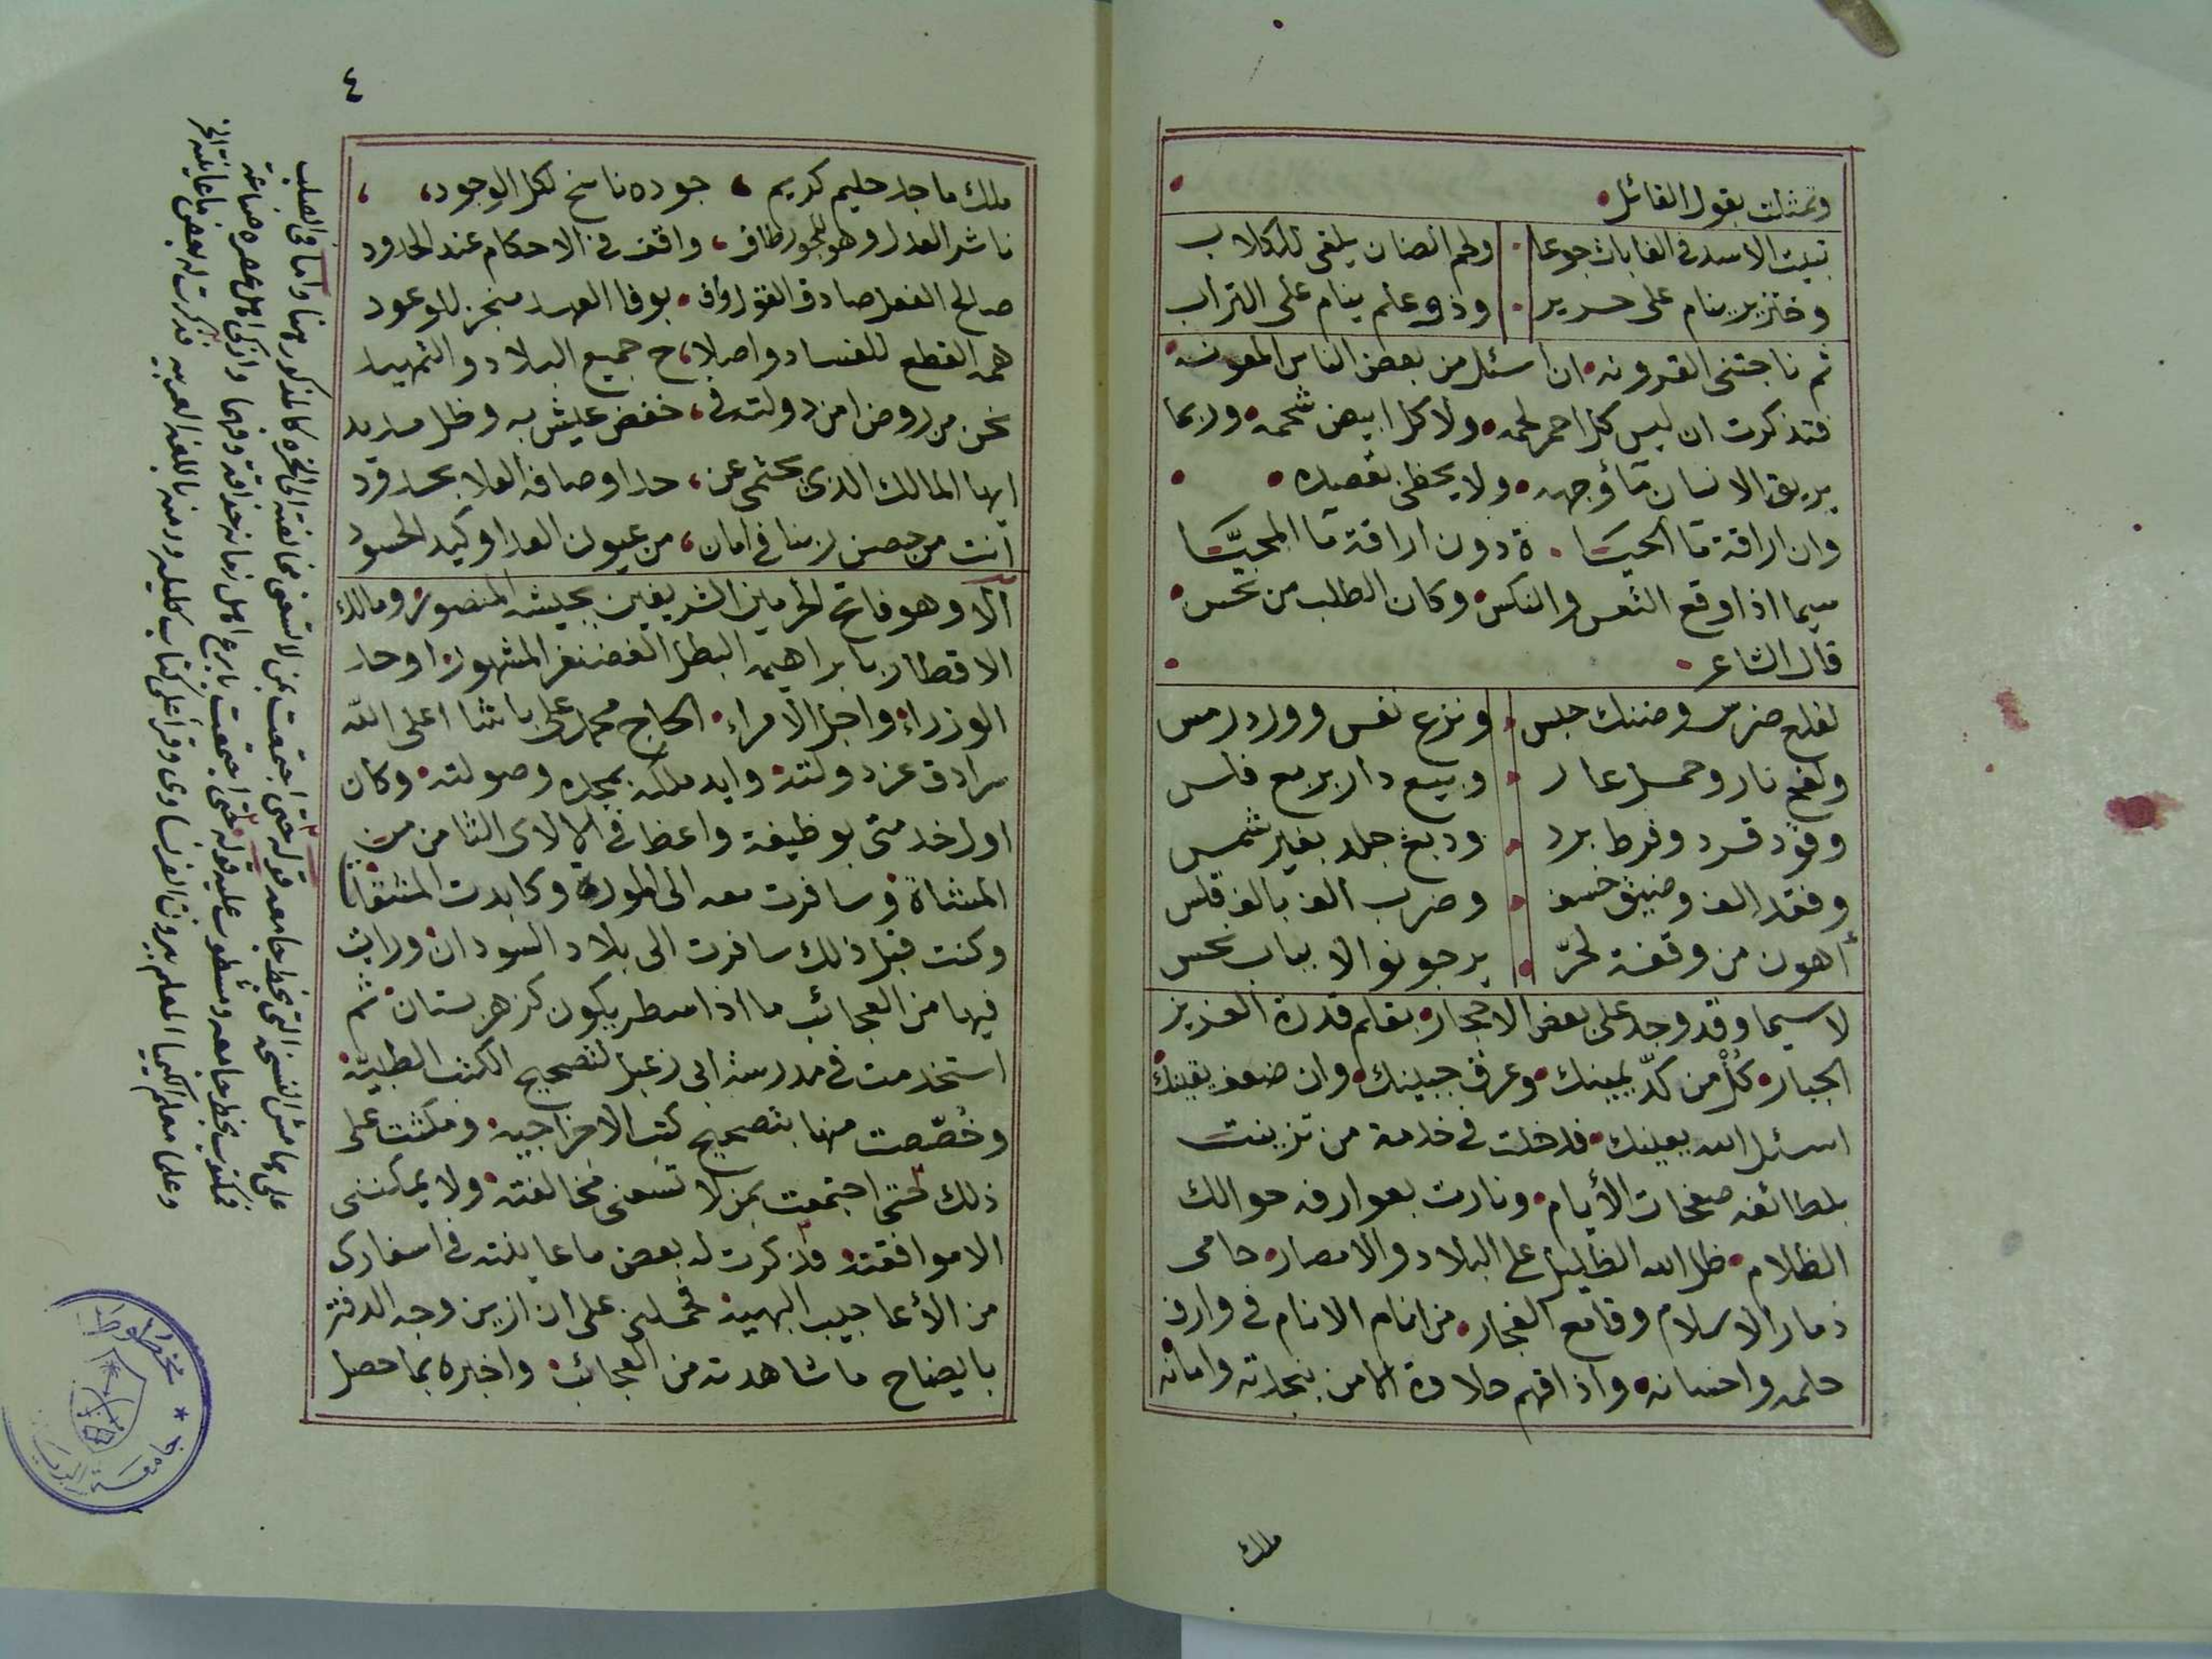 وتمثلت بقول القائل
تبيت الاسد في الغابات جوعا ولحم الضان يلقى للكلاب
وخنزير ينام على حرير وذو علم ينام على التراب
ثم ناجتني القرونه ان اسئل من بعض الناس المعونه
فتذكرت ان ليس كل احمر لحمه ولا كل ابيض شحمه وربما
يريق الانسان مآؤجهه ولا يحظى بقصده
وان اراقة مآ الحيا ة دون اراقة مآ المحيَّا
سيما اذا وقع التعس والنكس وكان الطلب من نحس
قال الشاعر
لقلع ضرس وضنك حبس ونزع نفس وورد رمس
ولفح نار وحمل عار وبيع دار بربع فلس
وقود قرد وفرط برد ودبغ جلد بغير شمس
وفقد الف وضيق خسف وضرب الف بالف قلس
أهون من وقفة لحرّ يرجو نوالا بباب نحس
لا سيما وقد وجد على بعض الاحجار بقلم قدرة العزيز
الجبار كُلْ من كدّ يمينك وعرق جبينك وان ضعف يقينك
اسئل الله يعينك فدخلت في خدمة من تزينت
بلطائفه صفحات الأيام ونارت بعوارفه حوالك
الظلام ظل الله الظليل على البلاد والامصار حامى
ذمار الاسلام وقامع الفجار من انام الانام في وارف
حلمه واحسانه واذاقهم حلاوة الامن بنجدته وامانه
ملك
٤
ملك ماجد حليم كريم جوده ناسخ لكل الوجود
ناشر العدل وهو للجور طاف واقف في الاحكام عند الحدود
صالح الفعل صادق القول واف بوفا العهد منجز للوعود
همه القطع للفساد واصلا ح جميع البلاد والتمهيد
نحن من روض امن دولته في خفض عيش به وظل مديد
ايها المالك الذى يحتمى عن حد اوصافه العلا بحدود
انت من حصن ربنا في امان من عيون العدا وكيد الحسود
ألا وهو فاتح الحرمين الشريفين بجيشه المنصور ومالك
الاقطار بابراهيمه البطل الغضنفر المشهور اوحد
الوزراء واجل الامراء الحاج محمد على باشا اعلى الله
سرادق عز دولته وايد ملكه بمجده وصولته وكان
اول خدمتى بوظيفة واعظ في الالاى الثامن من
المشاة وسافرت معه الى المورة وكابدت المشقات
وكنت قبل ذلك سافرت الى بلاد السودان ورايت
فيها من العجائب ما اذا سطر يكون كزهر بستان ثم
استخدمت في مدرسة ابى زعبل لتصحيح الكتب الطبية
وخُصّصت منها بتصحيح كتب الاجزاجيه ومكثت على
ذلك حتى اجتمعت بمن لا تسعنى مخالفته ولا يمكننى
الا موافقته فذكرت له بعض ما عاينته في اسفارى
من الأعاجيب البهية فحملنى على ان ازين وجه الدفتر
بايضاح ما شاهدته من العجائب واخبره بما حصل
على هامش النسخة التى بخط جامعه قوله حتى اجتمعت بمن لا تسعنى مخالفته الى اخره كالمذكور هنا واما في الصلب
فمكتوب بخط جامعه ومشطوب عليه قوله حتى اجتمعت بابرع اهل زمانه حذاقة وفهما واذكى اهل عصره صناعة
وعلما معلم الكيميا المعلم بيرون الفرنساوى وقرأ على كتاب كليله ودمنه باللغه العربيه فذكرت له بعض ما عاينته الخ
مخطوطات
جامعة الرياض